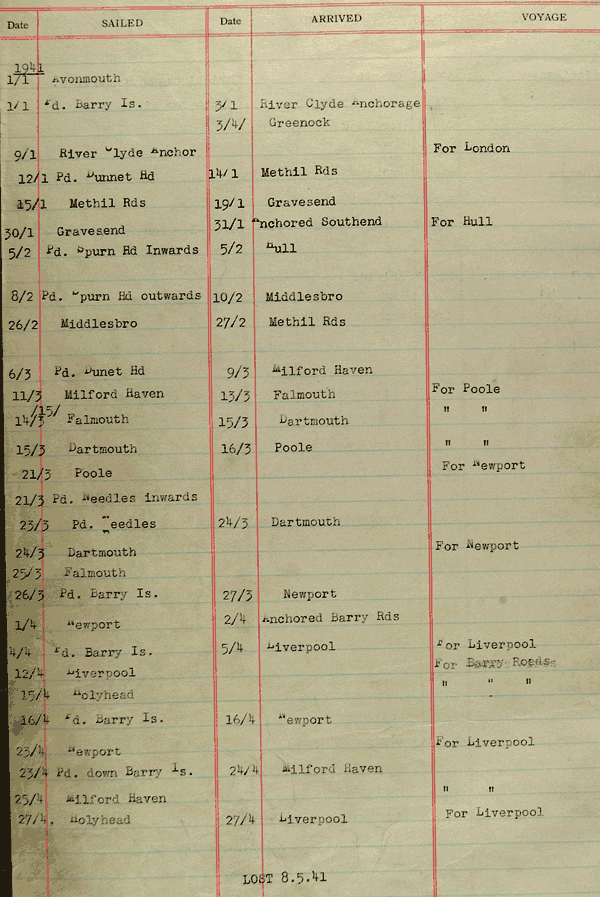 Date SAILED Date ARRIVED VOYAGE
1941
1/1 Avonmouth
1/1 Pd. Barry Is. 3/1 River Clyde Anchorage
3/4/ Greenock
9/1 River Clyde Anchor For London
12/1 Pd. Dunnet Hd 14/1 Methil Rds
15/1 Methil Rds 19/1 Gravesend
30/1 Gravesend 31/1 Anchored Southend For Hull
5/2 Pd. Spurn Hd Inwards 5/2 Hull
8/2 Pd. Spurn Hd outwards 10/2 Middlesbro
26/2 Middlesbro 27/2 Methil Rds
6/3 Pd. Dunet Hd 9/3 Milford Haven
11/3 Milford Haven 13/3 Falmouth For Poole
14/3 /15/ Falmouth 15/3 Dartmouth " "
15/3 Dartmouth 16/3 Poole " "
21/3 Poole For Newport
21/3 Pd. Needles inwards
23/3 Pd. Needles 24/3 Dartmouth
24/3 Dartmouth For Newport
25/3 Falmouth
26/3 Pd. Barry Is. 27/3 Newport
1/4 Newport 2/4 Anchored Barry Rds
4/4 Pd. Barry Is. 5/4 Liverpool For Liverpool
12/4 Liverpool For Barry Roads
15/4 Holyhead " " "
16/4 Pd. Barry Is. 16/4 Newport
23/4 Newport For Liverpool
23/4 Pd. down Barry Is. 24/4 Milford Haven
25/4 Milford Haven " "
27/4. Holyhead 27/4 Liverpool For Liverpool
LOST 8.5.41